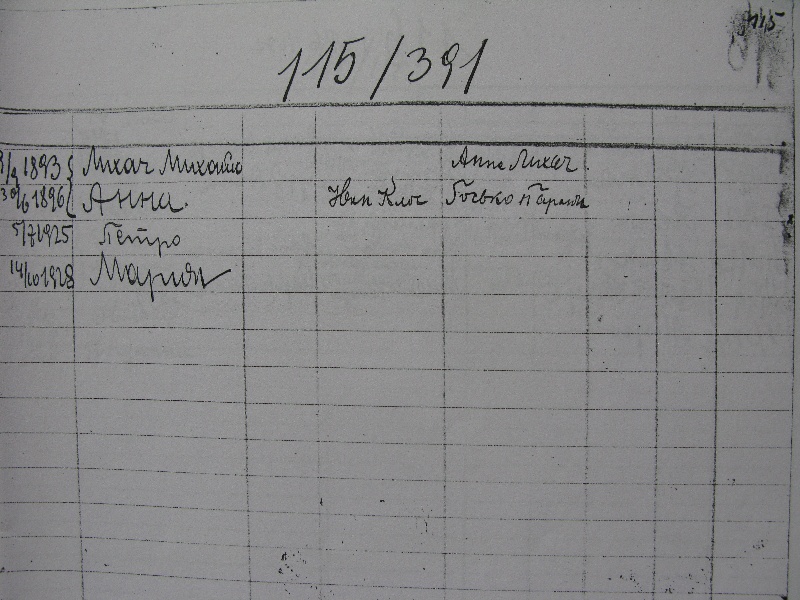 115
115/391
1893 Лихач Михайло Анна Лихач
30/6 1896 Анна Иван Клос
5/7 1925 Петро
14/10 1928 Мария